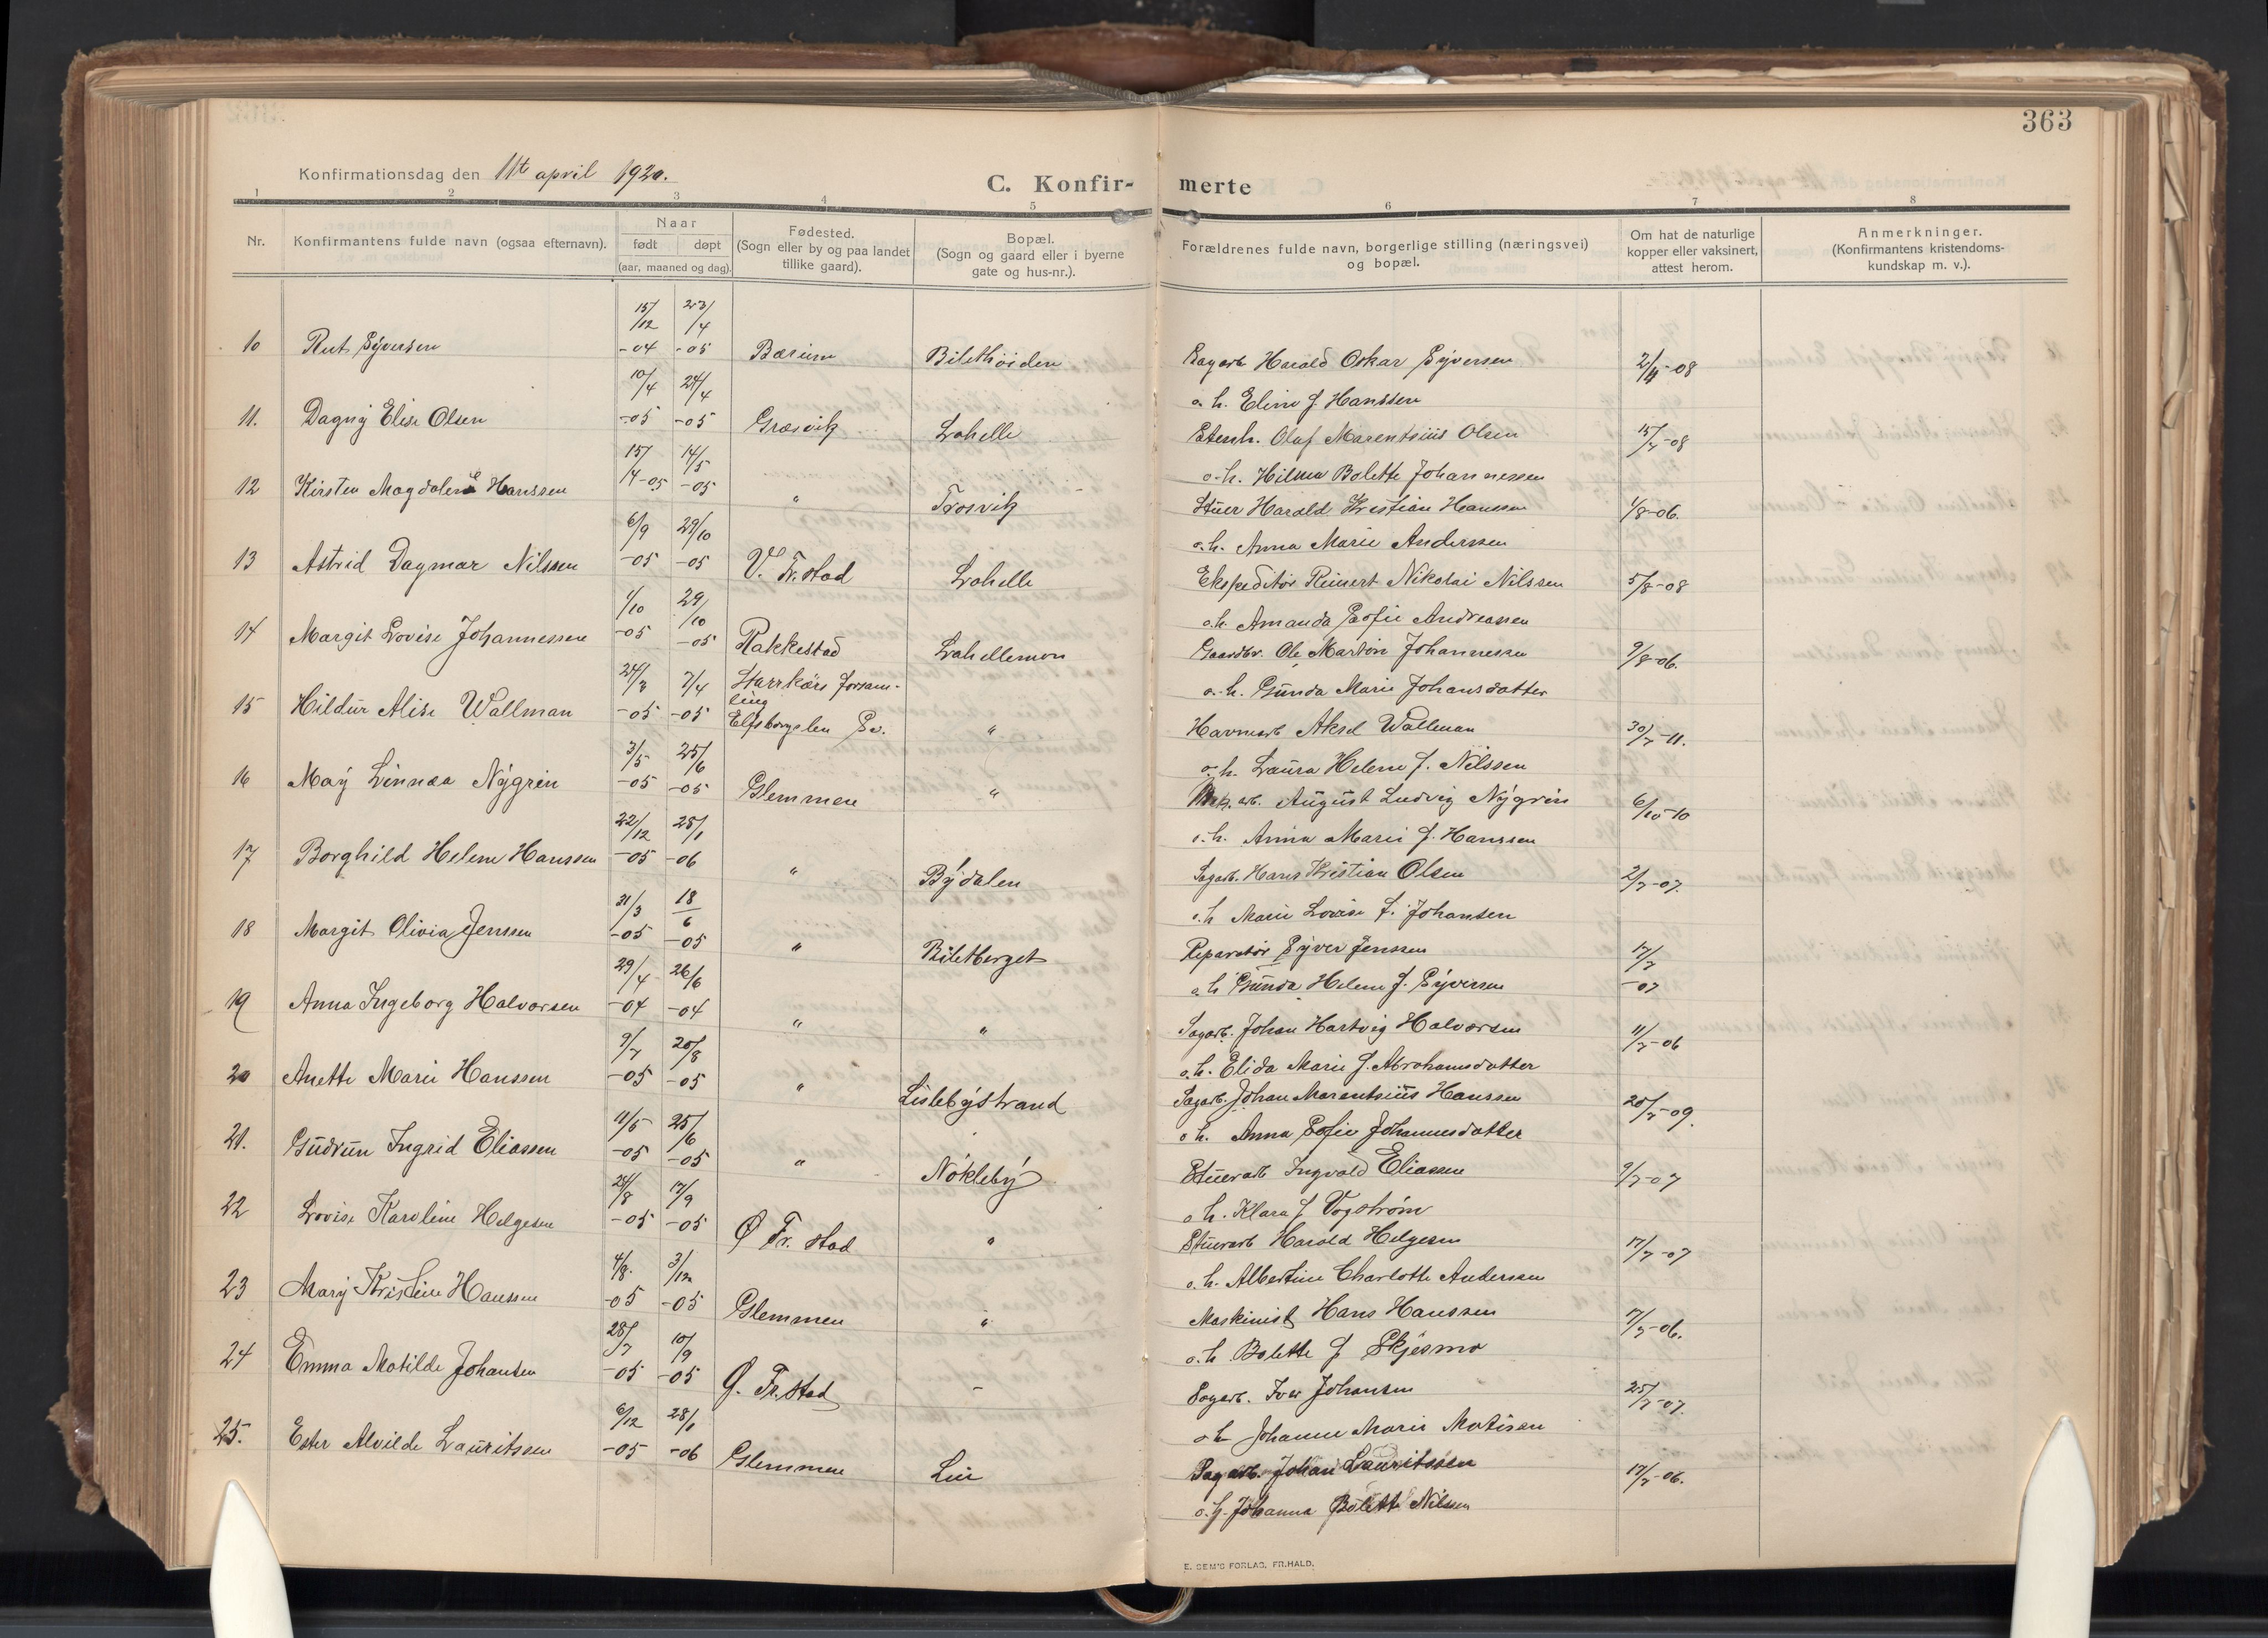 363
Konfirmationsdag den 11te april 1920.
C. Konfir- merte
1 2 3 4 5 6 7 8
Nr.
Konfirmantens fulde navn (ogsaa efternavn).
Naar
født døpt
(aar, maaned og dag).
Fødested.
(Sogn eller by og paa landet
tillike gaard).
Bopæl.
(Sogn og gaard eller i byerne
gate og hus-nr.).
Forældrenes fulde navn, borgerlige stilling (næringsvei)
og bopæl.
Om hat de naturlige
kopper eller vaksinert,
attest herom.
Anmerkninger.
(Konfirmantens kristendoms-
kundskap m. v.).
10 Rut Syversen 15/12 -04 23/4 -05 Bærum Bilethöiden Sagarb Harald Oskar Syversen 2/11-08
o. h. Eline f. Hanssen
11. Dagny Elise Olsen 10/4 -05 24/4 -05 Græsvik Lahelle Stenh. Olaf Marentsius Olsen 15/7-08
o. h. Hilma Bolette Johannessen
12 Kirsten Magdalene Hanssen 14-05 14/5 -05 " Trosvik Stuer Harald Kristian Hanssen 1/8-06.
o. h. Anna Marie Anderssen
13 Astrid Dagmar Nilssen 6/9 -05 29/10 -05 V. Fr.stad Lahelle Ekspeditør Reinert Nikolai Nilssen 5/8-08
o. h. Amanda Sofie Andreassen
14 Margit Lovise Johannessen 1/10 -05 29/10 -05 Rakkestad Lahellemon Gaardbr. Ole Martin Johannessen 9/8-06.
o. h. Gunda Marie Johansdatter
15 Hildur Alise Wallman 24/3 -05 7/4 -05 Starrkärs Forsam-
ling
Elfsborgslen Sv. " Havnearb Aksel Wallman 30/7-11.
o. h. Laura Helene f. Nilssen
16 May Linnæa Nygren 3/5 -05 25/6 -05 Glemmen " arb. August Ludvig Nygren 6/10-10
o. h. Anna Marie f. Hanssen
17 Borghild Helene Hanssen 22/12 -05 28/1 -06 " Bydalen Sagarb. Hans Kristian Olsen 2/7-07.
o. h Marie Lovise f. Johansen
18 Margit Olivia Jenssen 31/3 -05 18/6 -05 " Biletberget Reparatør Syver Jenssen 17/7 -07
o. h Gunda Helene f. Syversen
19 Anna Ingeborg Halvorsen 29/4 -04 26/6 -04 " " Sagarb. Johan Hartvig Halvorsen 11/7-06
o. h. Elida Marie f. Abrahamsdatter
20 Anette Marie Hanssen 9/7 -05 20/8 -05 " Lislebystrand Sagarb. Johan Marentsius Hanssen 20/7-09.
o h. Anna Sofie Johannesdatter
21. Gudrun Ingrid Eliassen 11/5 -05 25/6 -05 " Nökleby Stuerarb Ingvald Eliassen 9/7-07
o h. Klara f Vogström
22 Lovise Karoline Helgesen 24/8 -05 17/9 -05 Ø Fr. stad " Stuerarb Harald Helgesen 17/7-07
o. h. Albertine Charlotte Andersen
23 Mary Kristine Hanssen 4/8. -05 3/12 -05 Glemmen " Maskinist Hans Hanssen 7/7-06.
o. h. Bolette f Skjesmo
24 Emma Matilde Johansen 28/7 -05 10/9 -05 Ø. Fr.stad - Sagarb. Iver Johansen 25/7-07.
o h Johanne Marie Matisen
25. Ester Alvilde Lauritssen 6/12 -05 28/1 -06 Glemmen Lie Sagarb. Johan Lauritssen 17/7-06.
o. h. Johanna Bolette Nilssen
E. SEM'S FORLAG, FR.HALD.